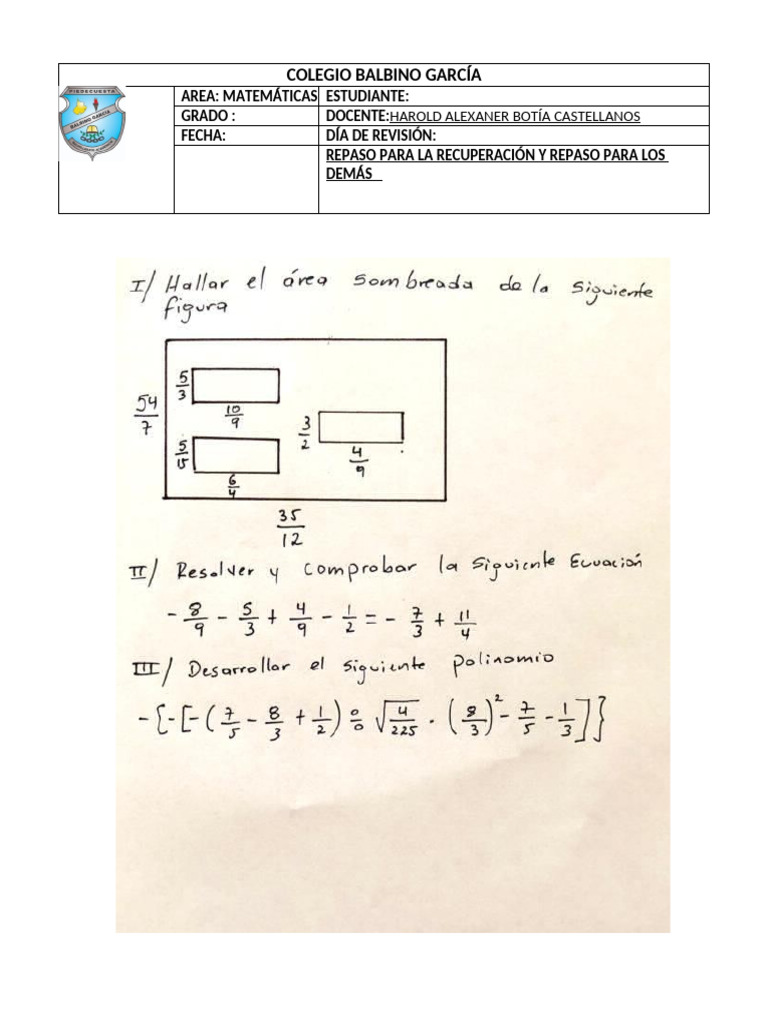 COLEGIO BALBINO GARCÍA
PIEDECUESTA
BALBINO GARCÍA
AREA: MATEMÁTICAS ESTUDIANTE:
GRADO : DOCENTE:HAROLD ALEXANER BOTÍA CASTELLANOS
FECHA: DÍA DE REVISIÓN:
REPASO PARA LA RECUPERACIÓN Y REPASO PARA LOS
DEMÁS
I/ Hallar el área sombreada de la siguiente
figura
54/7
5/3
10/9
5/15
6/4
3/2
4/9
35/12
II/ Resolver y comprobar la siguiente Ecuación
- 8/9 - 5/3 + 4/9 - 1/2 = - 7/3 + 11/4
III/ Desarrollar el siguiente polinomio
-{-[-(7/5 - 8/3 + 1/2) ÷ √4/225 · (8/3)² - 7/5 - 1/3]}